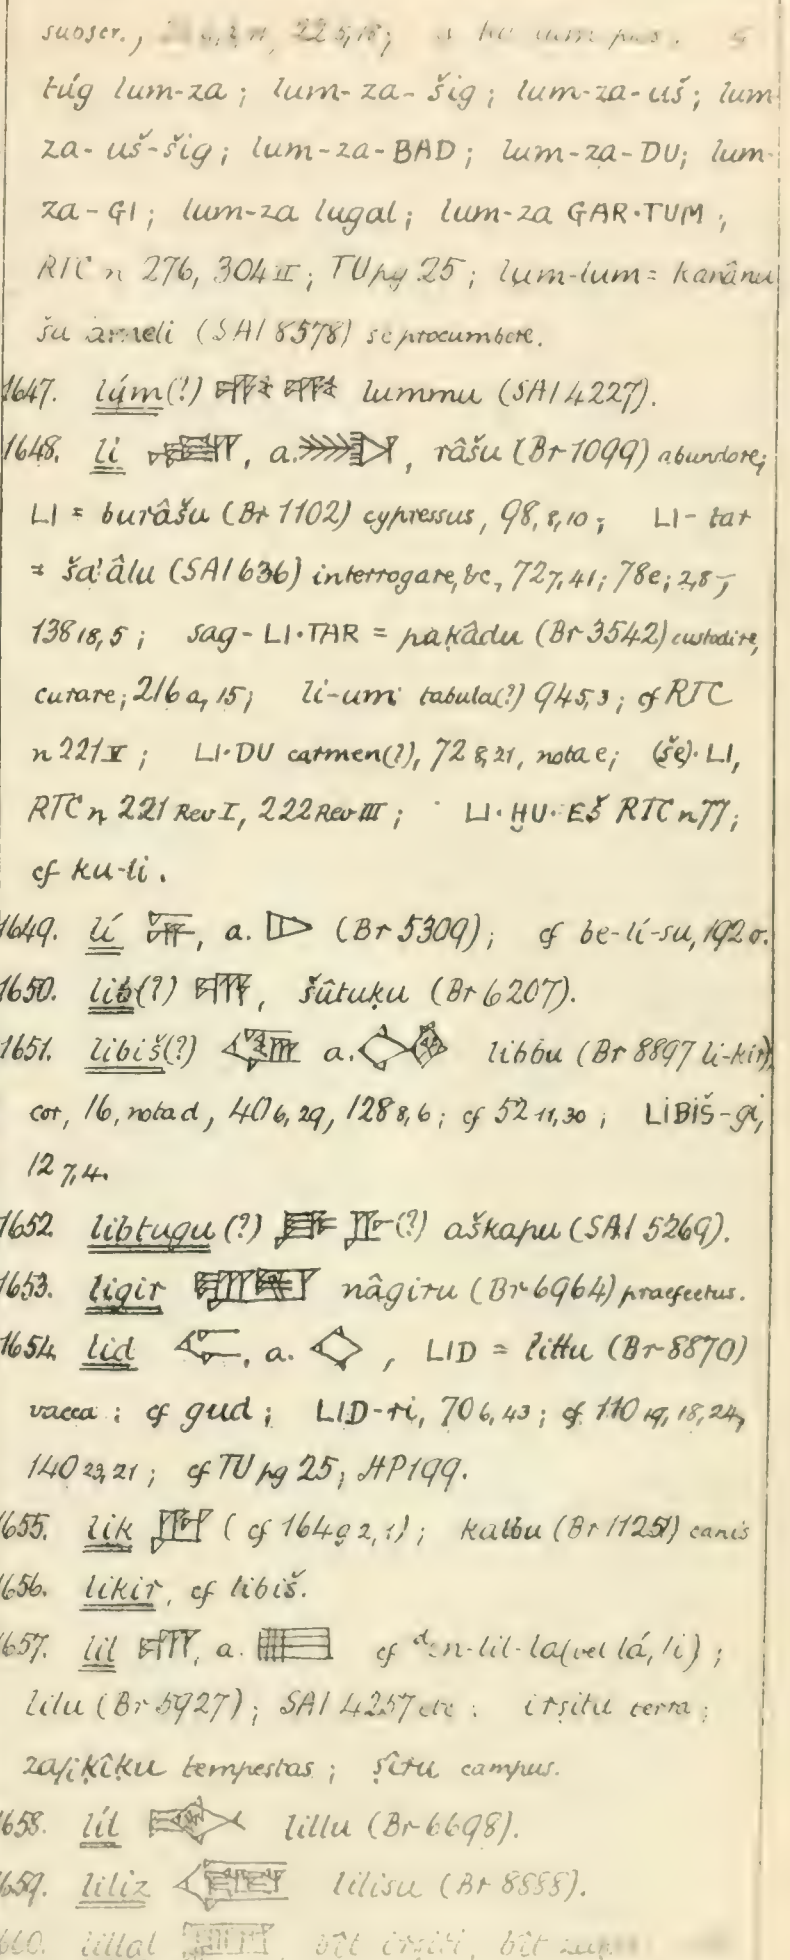 subscr., 225,18;
túg lum-za; lum-za-šig; lum-za-uš; lum-
za-uš-šig; lum-za-BAD; lum-za-DU; lum-
za-GI; lum-za lugal; lum-za GAR·TUM;
RTC n 276, 304 II; TU pg 25; lum-lum = karânu
ša ameli (SAI 8578) se procumbere.
1647. lúm(?) lummu (SAI 4227).
1648. li , a. , râšu (Br 1099) abundore;
LI = burâšu (Br 1102) cypressus, 98,8,10; LI-tar
= ša'âlu (SAI 636) interrogare, &c, 727,41; 78e; 2,8;
138 18,5; sag-LI·TAR = paḳâdu (Br 3542) custodire,
curare; 216 a, 15; li-um tabula(?) 945,3; cf RTC
n 221 V; LI·DU carmen(?), 72 8,21, nota e; (še)·LI,
RTC n 221 Rev I, 222 Rev III; LI·ḪU·EŠ RTC n 77;
cf ku-li.
1649. lí , a. (Br 5309); cf be-lí-su, 192 σ.
1650. lib(?) , šûtuḳu (Br 6207).
1651. libiš(?) a. libbu (Br 8897 li-kir),
cor, 16, nota d, 406,29, 128 8,6; cf 52 11,30; LIBIŠ-gi,
12 7,4.
1652. libtugu (?) (?) aškapu (SAI 5269).
1653. ligir nâgiru (Br 6964) praefectus.
1654. lid , a. , LID = littu (Br 8870)
vacca; cf gud; LID-ri, 706,43; cf 110 19,18,24,
140 23,21; cf TU pg 25; HP 199.
1655. lik (cf 164 g 2,1); kalbu (Br 11251) canis
1656. likir, cf libiš.
1657. lil , a. cf ᵈen-lil-la (vel lá, li);
lilu (Br 5927); SAI 4257 etc. irṣitu terra;
zaḳîḳu tempestas; ṣîru campus.
1658. líl lillu (Br 6698).
1659. liliz lilisu (Br 8888).
1660. lillal , bît irṣiti, bît